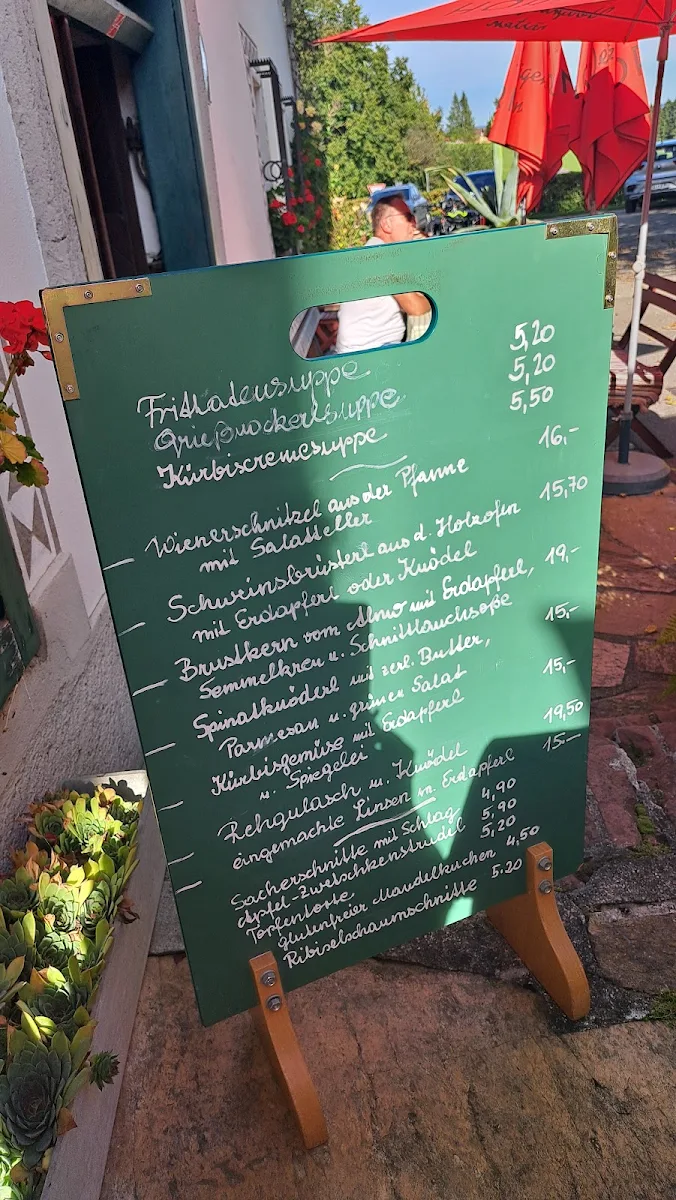 Frittatensuppe 5,20
Grießnockerlsuppe 5,20
Kürbiscremesuppe 5,50
Wienerschnitzel aus der Pfanne 16,-
mit Salatteller
Schweinsbrüsterl aus d. Holzofen 15,70
mit Erdapferl oder Knödel
Brustkern vom Almo mit Erdapferl, 19,-
Semmelkren u. Schnittlauchsoße
Spinatknöderl mit zerl. Butter, 15,-
Parmesan u. grünen Salat
Kürbisgemüse mit Erdapferl 15,-
u. Spiegelei
Rehgulasch u. Knödel 19,50
eingemachte Linsen m. Erdapferl 15.-
Sacherschnitte mit Schlag 4,90
Apfel-Zwetschkenstrudel 5,90
Topfentorte 5,20
glutenfreier Mandelkuchen 4,50
Ribiselschaumschnitte 5.20